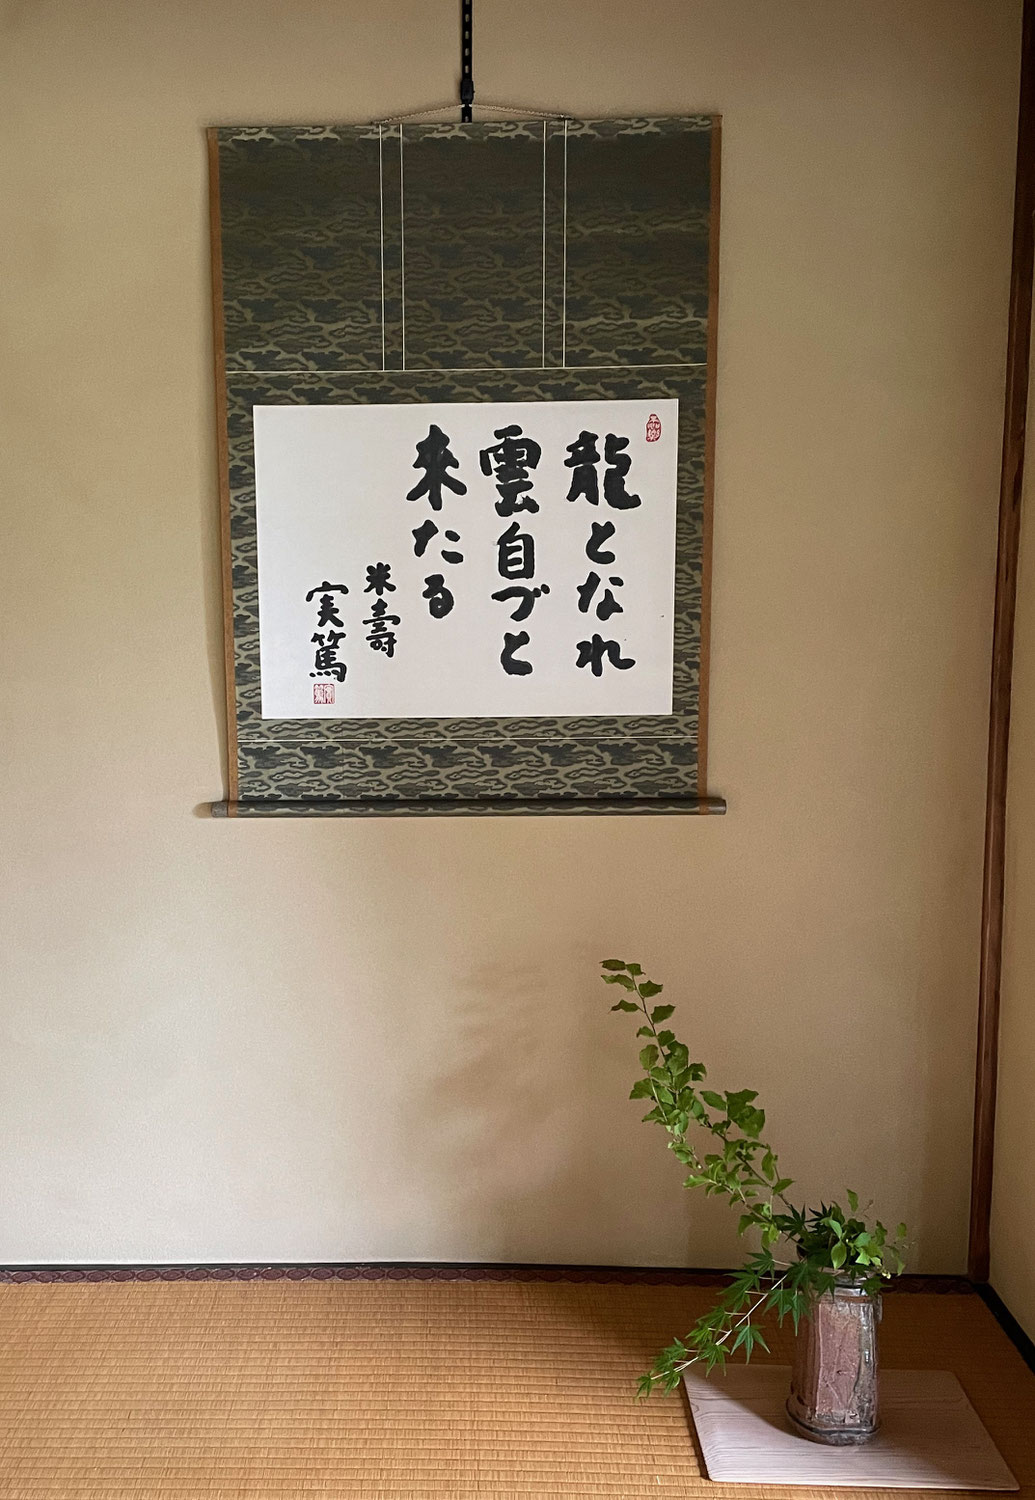 龍となれ
雲自づと
来たる
米壽
実篤